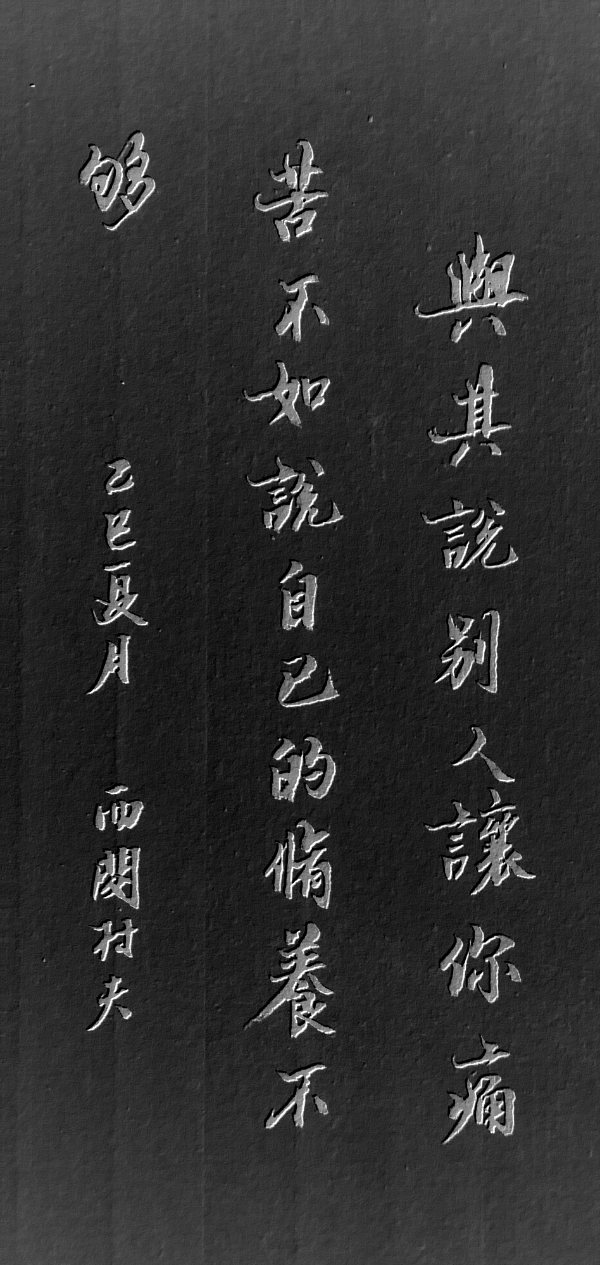 與其說别人讓你痛
苦不如說自己的脩養不
够
乙巳夏月 西閣村夫